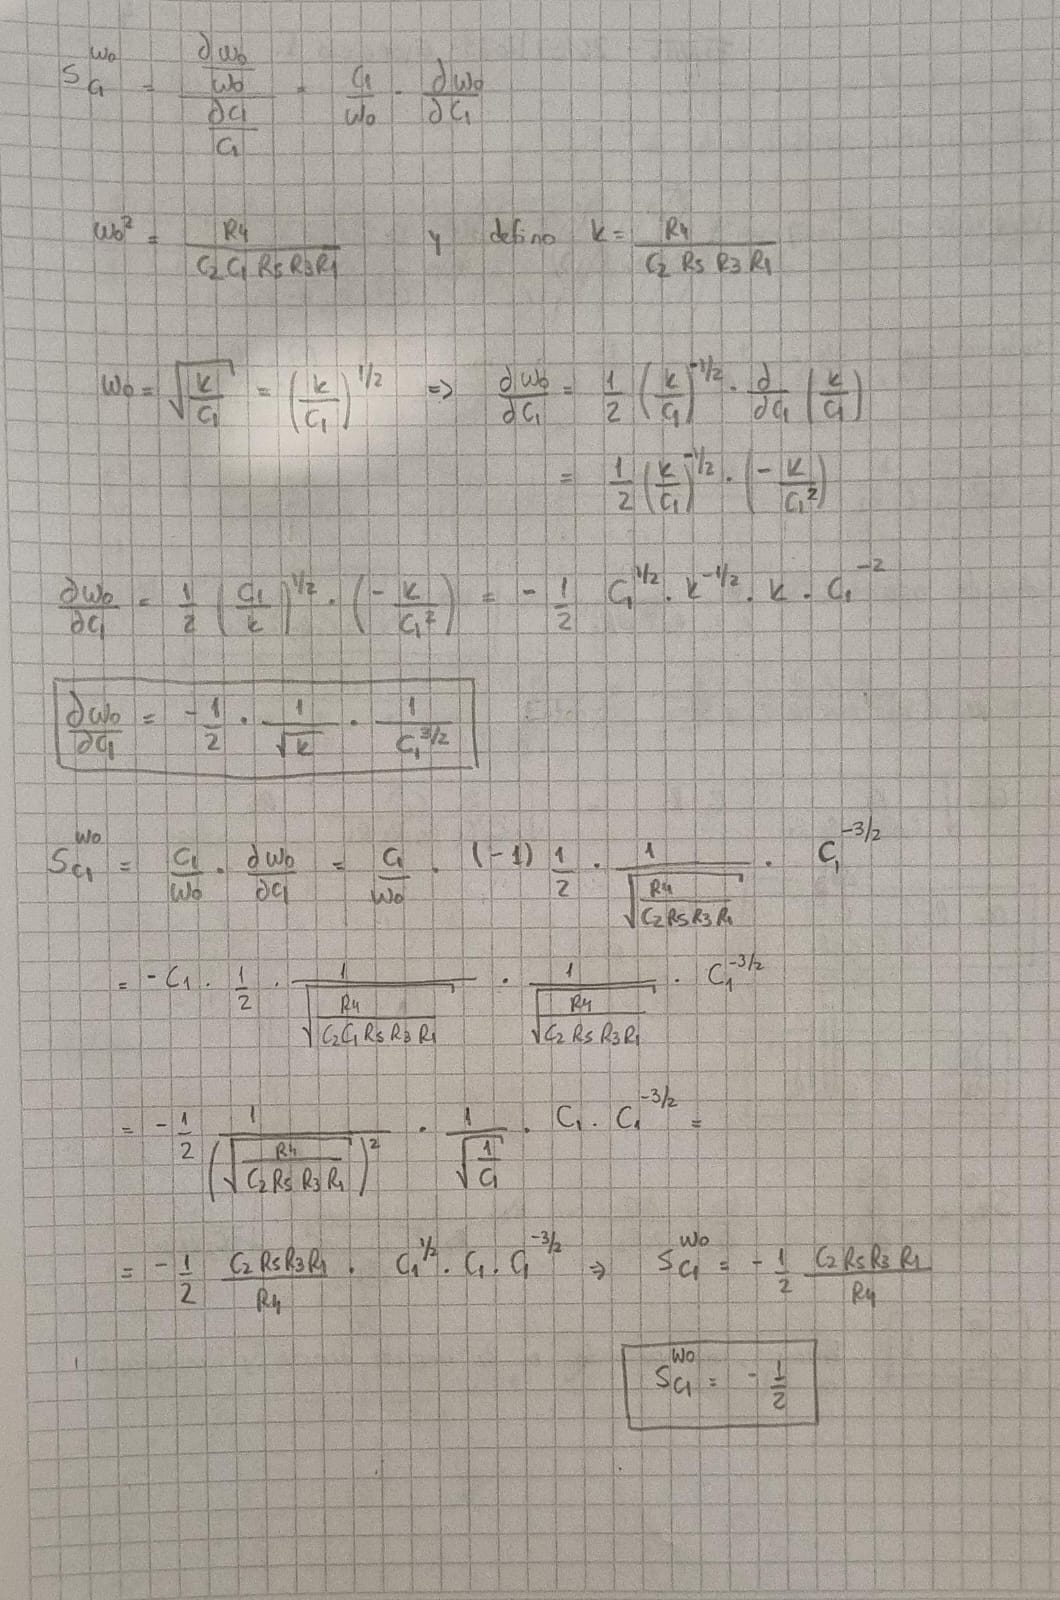 S_{C1}^{w0} = \frac{\frac{∂w0}{w0}}{\frac{∂C1}{C1}} = \frac{C1}{w0} · \frac{∂w0}{∂C1}
w0² = \frac{R4}{C2 C1 R5 R3 R1} y defino k = \frac{R4}{C2 R5 R3 R1}
w0 = \sqrt{\frac{k}{C1}} = (\frac{k}{C1})^{1/2} => \frac{∂w0}{∂C1} = \frac{1}{2} (\frac{k}{C1})^{-1/2} · \frac{∂}{∂C1} (\frac{k}{C1})
= \frac{1}{2} (\frac{k}{C1})^{-1/2} · (-\frac{k}{C1²})
\frac{∂w0}{∂C1} = \frac{1}{2} (\frac{C1}{k})^{1/2} · (-\frac{k}{C1²}) = -\frac{1}{2} C1^{1/2} · k^{-1/2} · k · C1^{-2}
\frac{∂w0}{∂C1} = -\frac{1}{2} · \frac{1}{\sqrt{k}} · \frac{1}{C1^{3/2}}
S_{C1}^{w0} = \frac{C1}{w0} · \frac{∂w0}{∂C1} = \frac{C1}{w0} · (-1) \frac{1}{2} · \frac{1}{\sqrt{\frac{R4}{C2 R5 R3 R1}}} · C1^{-3/2}
= -C1 · \frac{1}{2} · \frac{1}{\sqrt{\frac{R4}{C2 C1 R5 R3 R1}}} · \frac{1}{\sqrt{\frac{R4}{C2 R5 R3 R1}}} · C1^{-3/2}
= -\frac{1}{2} \frac{1}{(\sqrt{\frac{R4}{C2 R5 R3 R1}})^2} · \frac{1}{\sqrt{\frac{1}{C1}}} · C1 · C1^{-3/2} =
= -\frac{1}{2} \frac{C2 R5 R3 R1}{R4} · C1^{1/2} · C1 · C1^{-3/2} => S_{C1}^{w0} = -\frac{1}{2} \frac{C2 R5 R3 R1}{R4}
S_{C1}^{w0} = -\frac{1}{2}